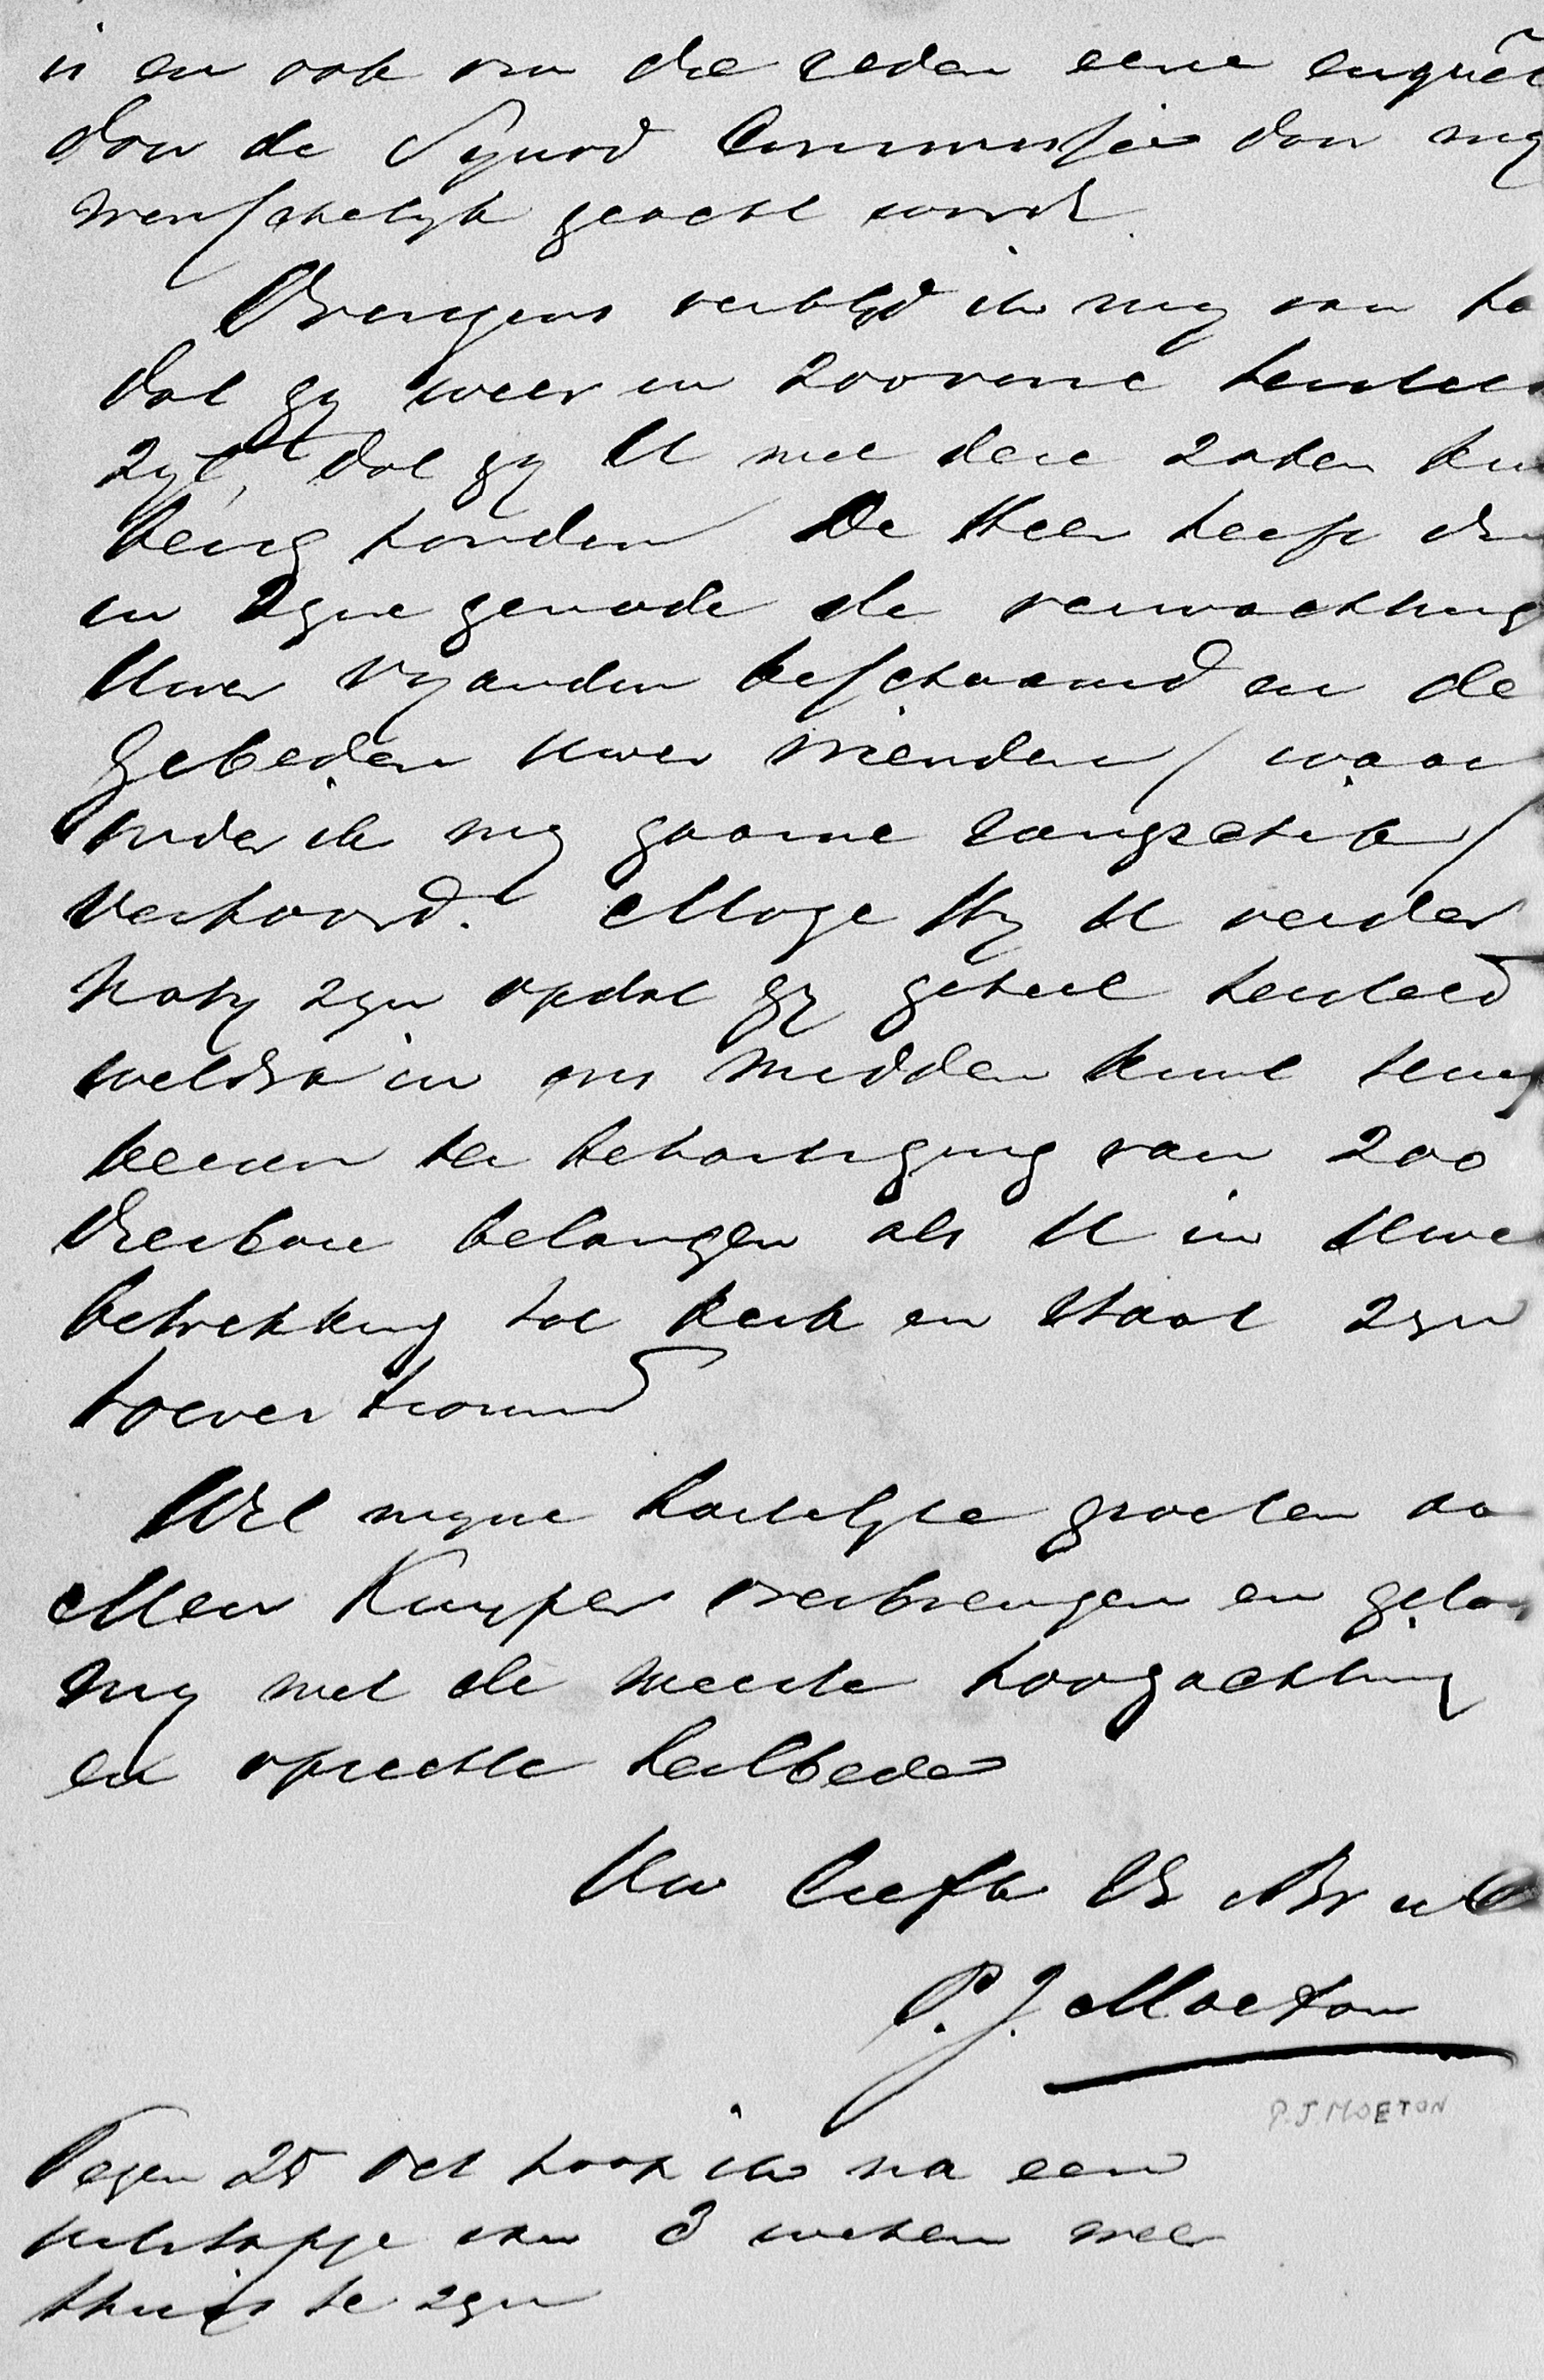 is en ook om die reden eene enquêt
door de Synod Commissie door my
wenschelyk geacht wordt.
Overigens verblyd ik my van ha
dat gy weer in zooverre herstel
zyt, dat gy U met deze zaken kun
bezig houden De Heer heeft dan
in Zyne genade de verwachting
Uwer vyanden beschaamd en de
gebeden uwer vrienden / waar
onder ik my gaarne rangschik /
verhoord. Moge Hy U verder
naby zyn opdat gy geheel hersteld
weldra in ons midden kunt terug
keeren ter behartiging van zoo
dierbare belangen als U in Uwe
betrekking tot kerk en Staat zyn
toevertrouwd
Wil myne hartelyke groeten aa
Mevr Kuyper overbrengen en geloo
my met de meeste hoogachting
en oprechte heilbede
Uw liefh Vr Br
P. J. Moeton
P.J. MOETON
Tegen 25 Oct hoop ik na een
uitstapje van 3 weken weer
thuis te zyn